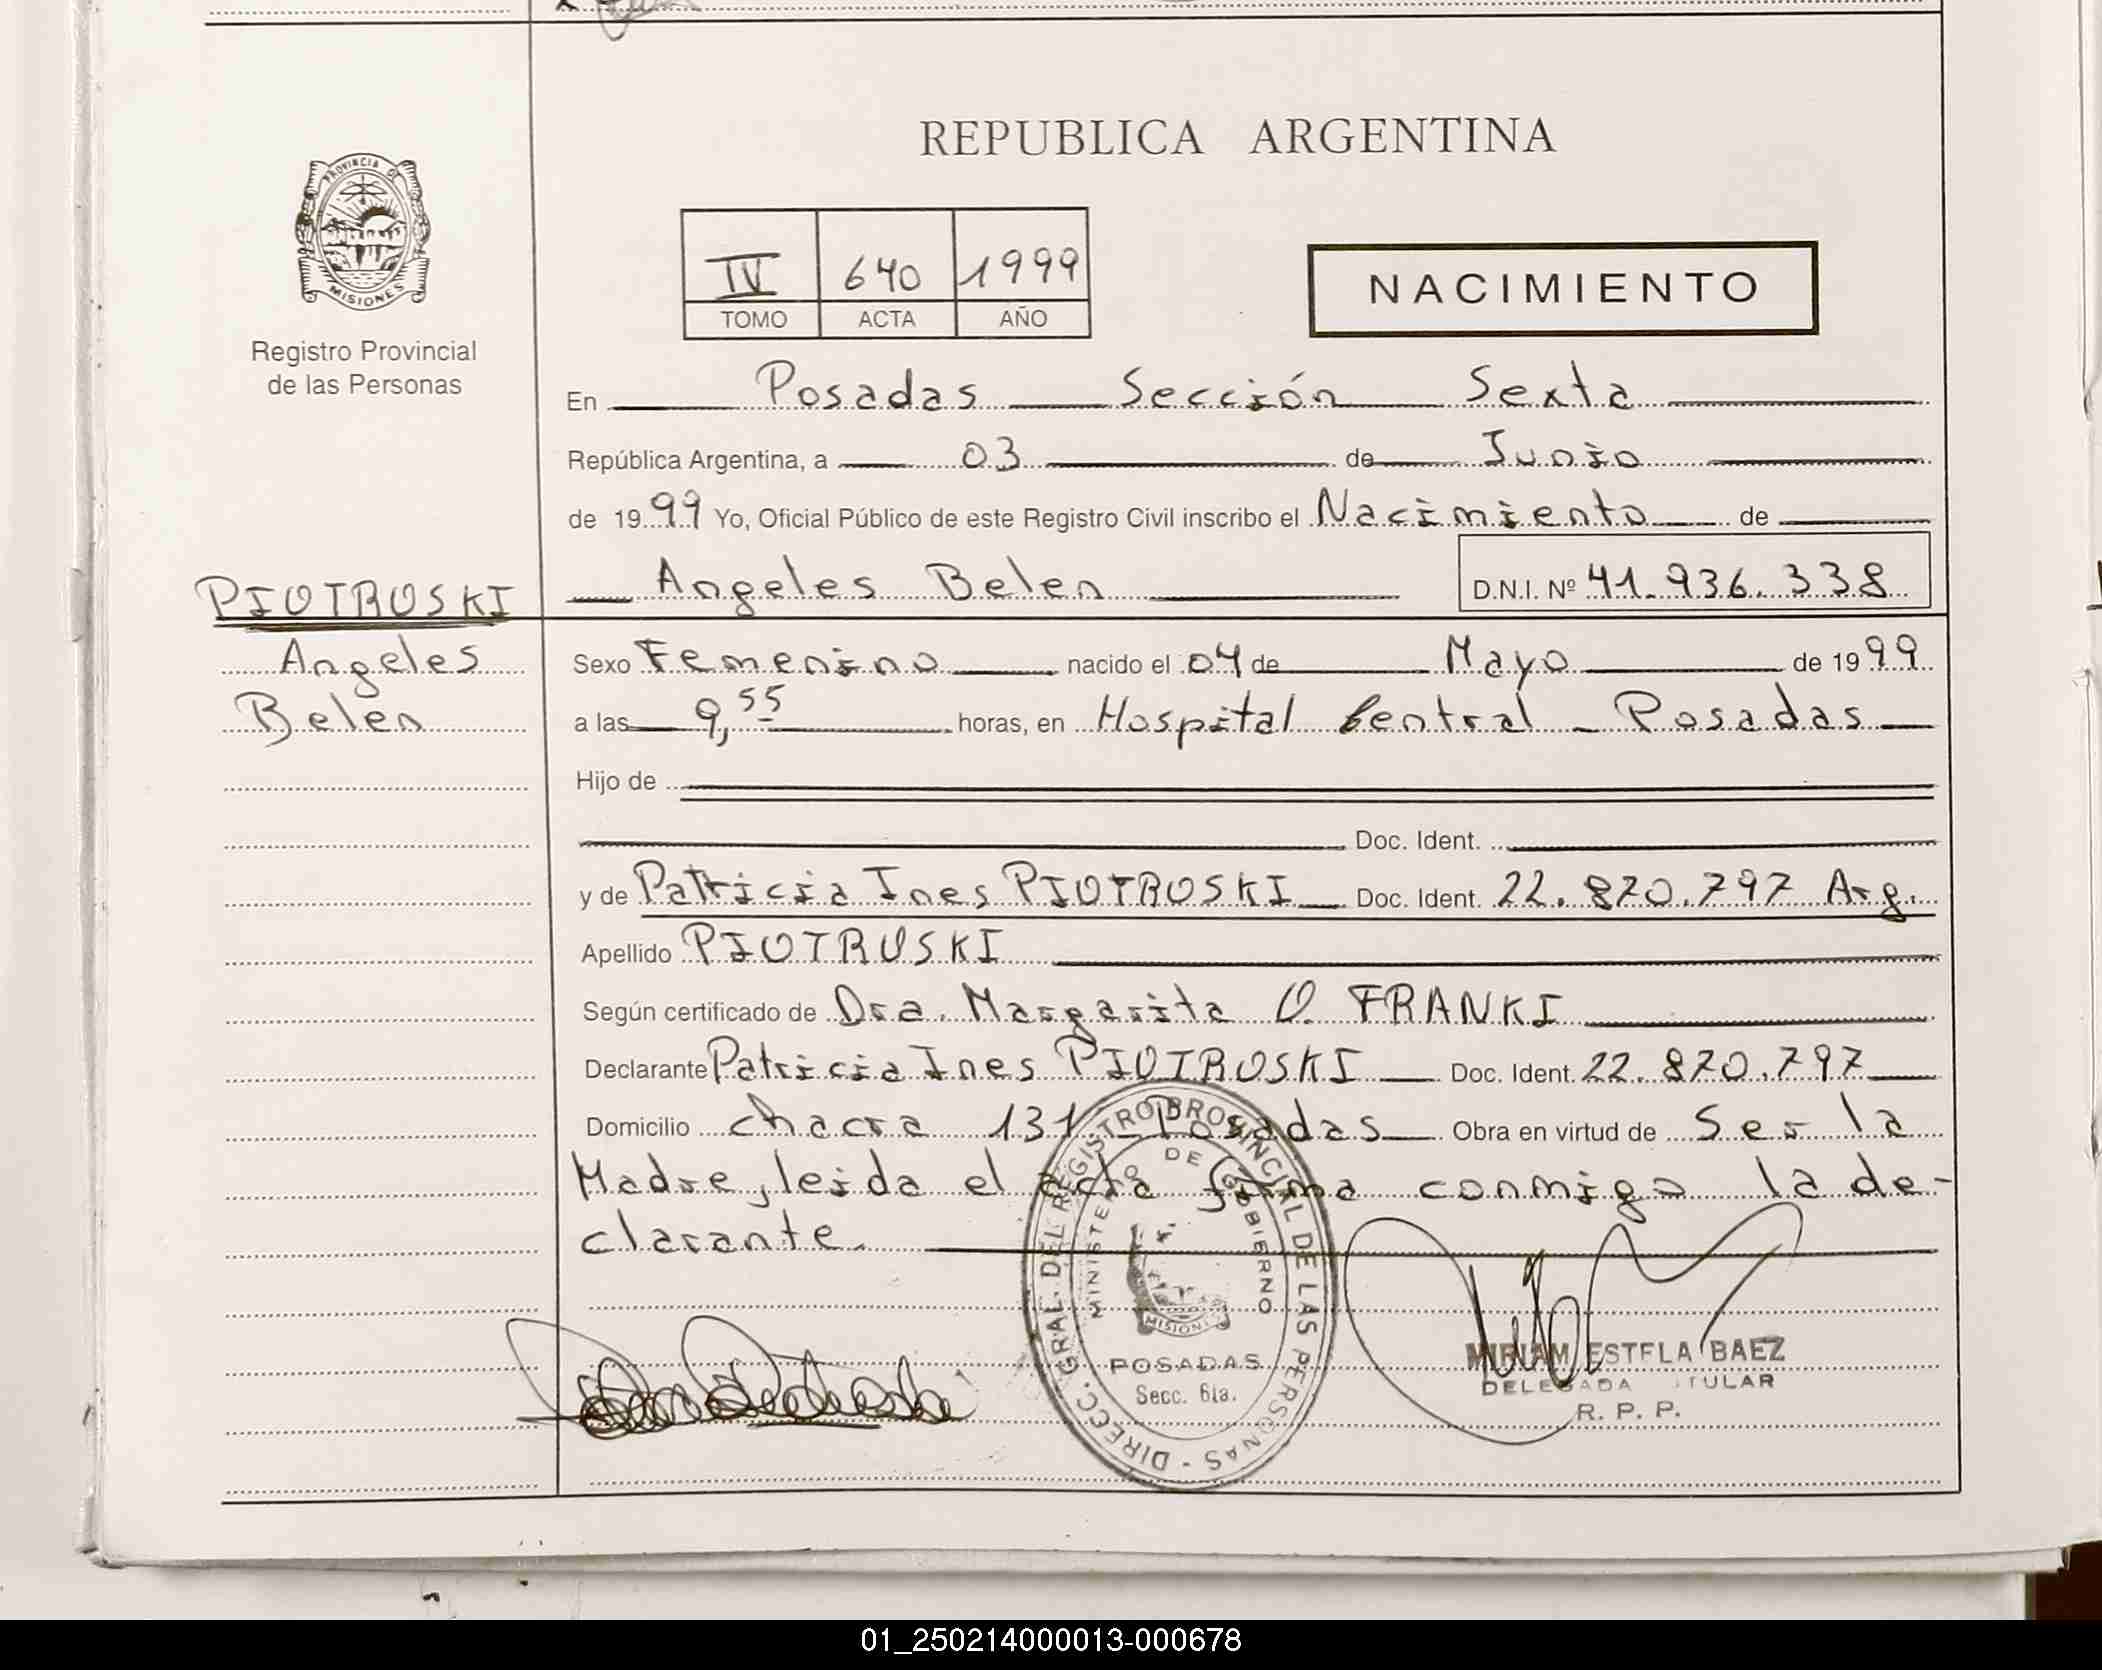 REPUBLICA ARGENTINA
PROVINCIA DE
MISIONES
Registro Provincial
de las Personas
IV 640 1999
TOMO ACTA AÑO
NACIMIENTO
En Posadas Sección Sexta
República Argentina, a 03 de Junio
de 1999 Yo, Oficial Público de este Registro Civil inscribo el Nacimiento de
Angeles Belen D.N.I. Nº 41.936.338
PIOTROSKI
Angeles
Belen
Sexo Femenino nacido el 04 de Mayo de 1999
a las 9,55 horas, en Hospital Central - Posadas
Hijo de
Doc. Ident.
y de Patricia Ines PIOTROSKI Doc. Ident. 22.870.797 Arg.
Apellido PIOTRUSKI
Según certificado de Dra. Margarita O. FRANKI
Declarante Patricia Ines PIOTROSKI Doc. Ident. 22.870.797
Domicilio chacra 131 - Posadas Obra en virtud de Ser la
Madre, leida el acta firma conmigo la de-
clarante.
DIRECC. GRAL. DEL REGISTRO PROVINCIAL DE LAS PERSONAS -
MINISTERIO DE GOBIERNO
MISIONES
POSADAS
Secc. 6ta.
MIRIAM ESTELA BAEZ
DELEGADA TITULAR
R. P. P.
01_250214000013-000678